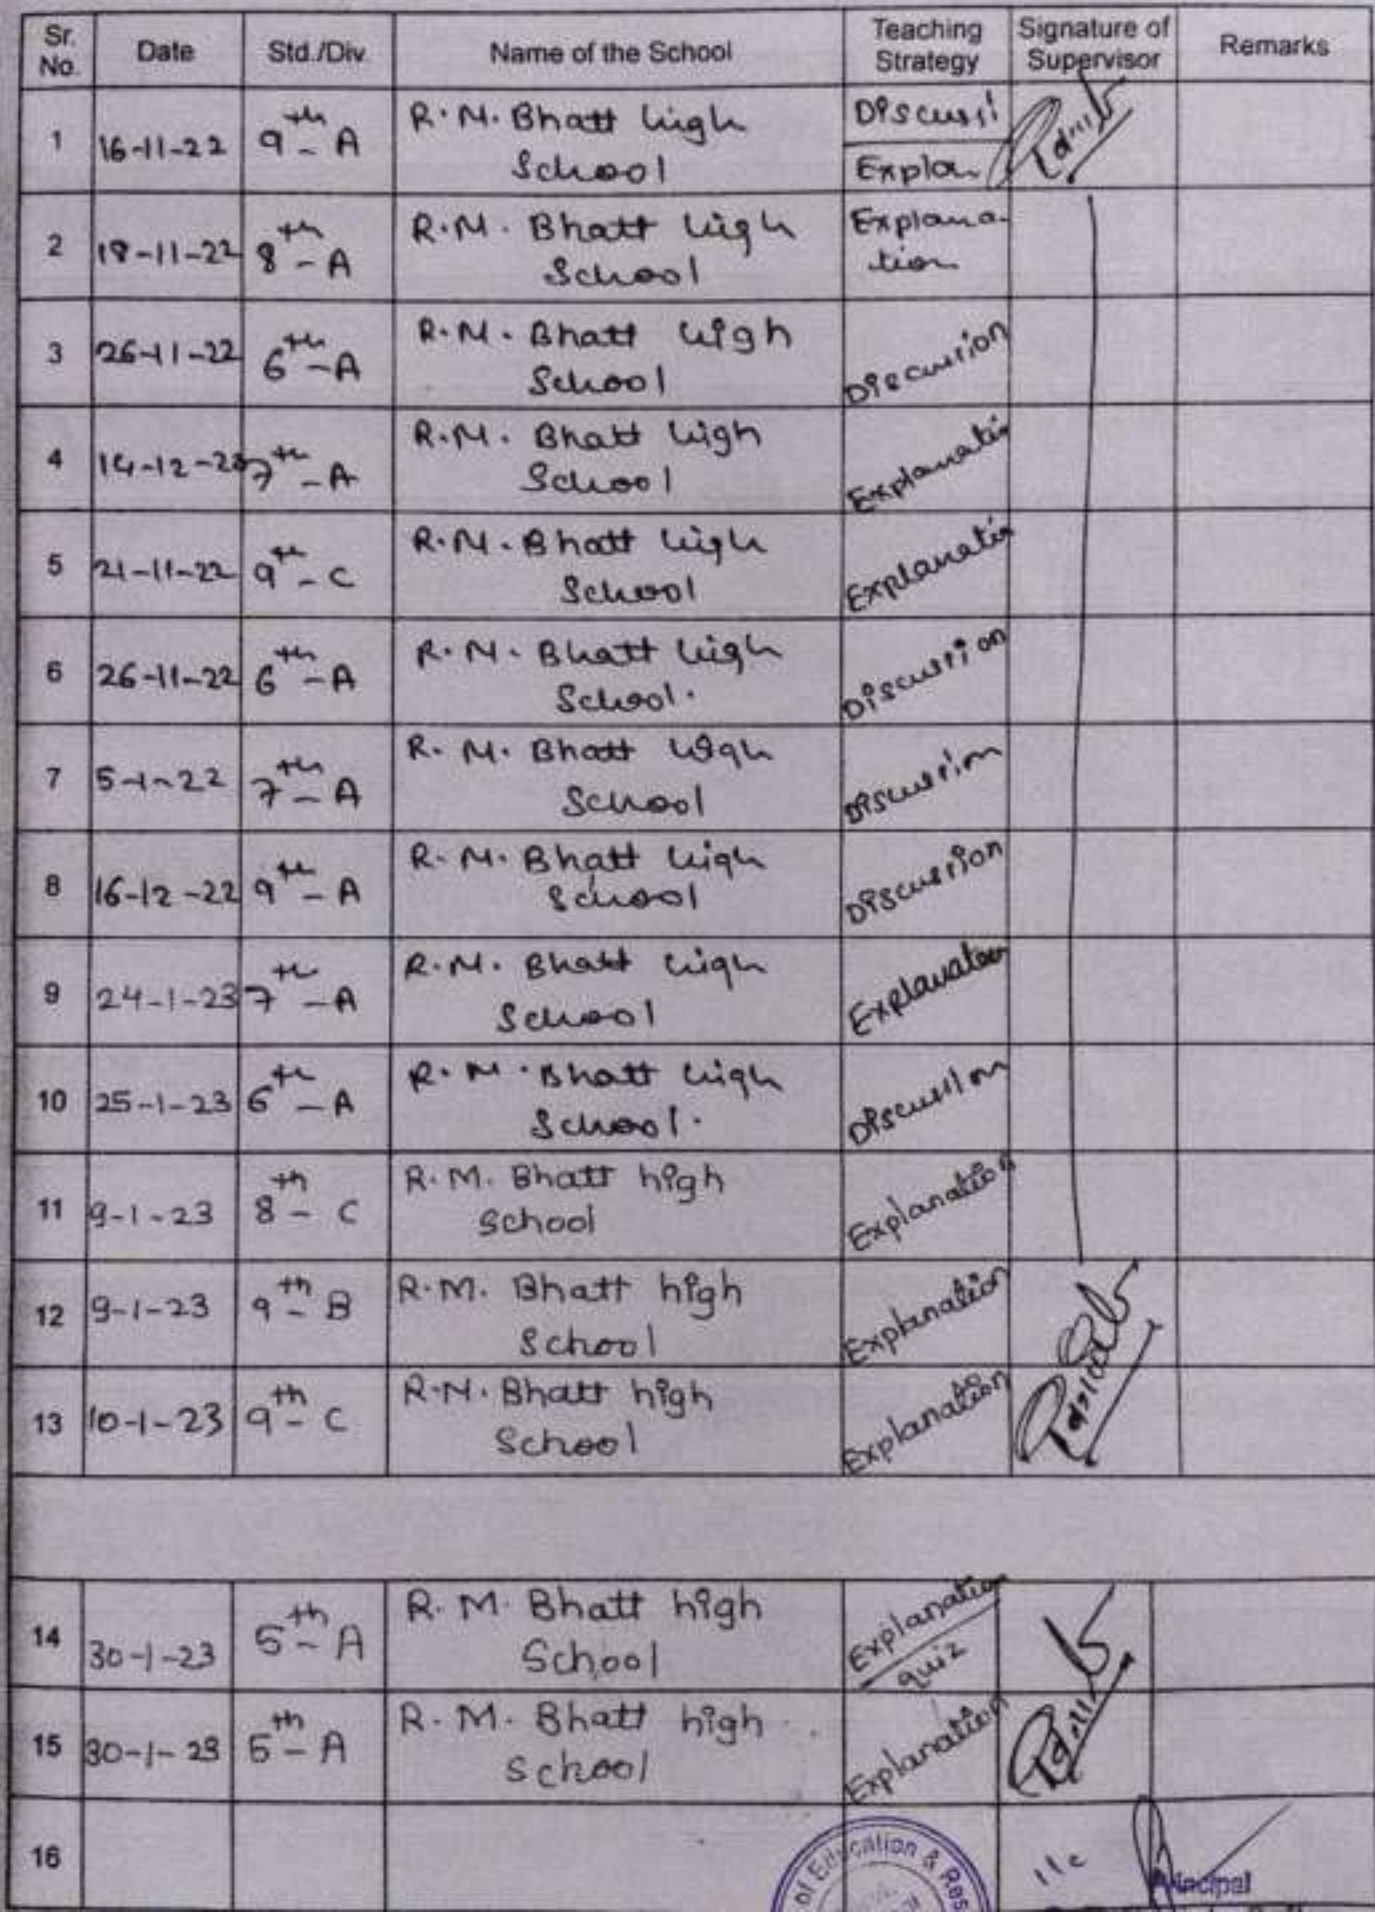 Sr. No. Date Std./Div. Name of the School Teaching Strategy Signature of Supervisor Remarks
1 16-11-22 9th - A R.M. Bhatt high School Discussi Explan
2 18-11-22 8th - A R.M. Bhatt high School Explana-tion
3 26-11-22 6th - A R.M. Bhatt high School Discussion
4 14-12-22 7th - A R.M. Bhatt high School Explanatin
5 21-11-22 9th - C R.M. Bhatt high School Explanatin
6 26-11-22 6th - A R.M. Bhatt high School. Discussion
7 5-1-22 7th - A R.M. Bhatt high School Discussion
8 16-12-22 9th - A R.M. Bhatt high School Discussion
9 24-1-23 7th - A R.M. Bhatt high School Explanation
10 25-1-23 6th - A R.M. Bhatt high School. Discussion
11 9-1-23 8th - C R.M. Bhatt high School Explanation
12 9-1-23 9th - B R.M. Bhatt high School Explanation
13 10-1-23 9th - C R.M. Bhatt high School Explanation
14 30-1-23 5th - A R.M. Bhatt high School Explanation quiz
15 30-1-23 5th - A R.M. Bhatt high School Explanation
16
of Education & Res
I/c Principal